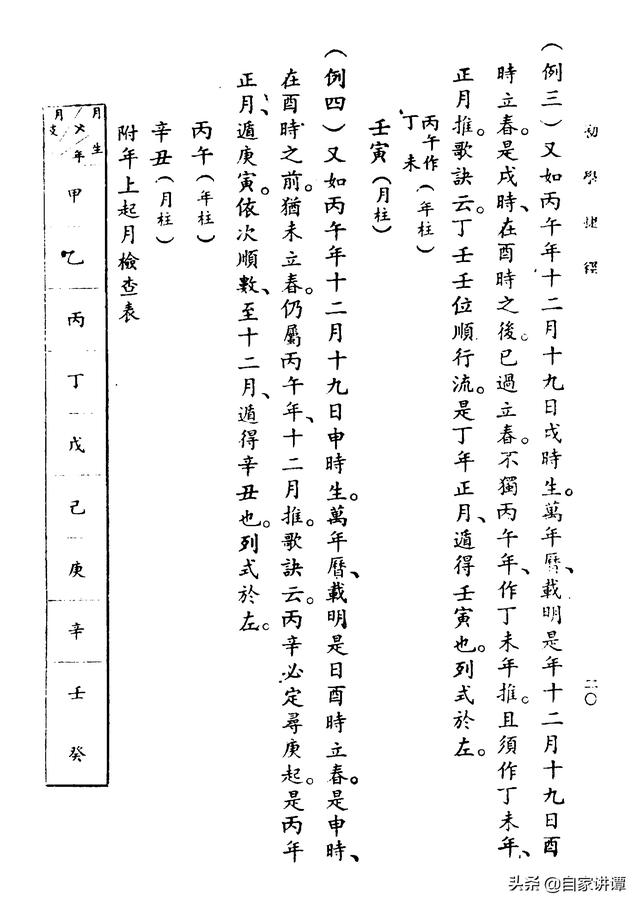 初學捷徑
二〇
（例三）又如丙午年十二月十九日戌時生。萬年曆、載明是年十二月十九日酉
時立春。是戌時、在酉時之後。已過立春。不獨丙午年、作丁未年推。且須作丁未年、
正月推。歌訣云。丁壬壬位順行流。是丁年正月、遁得壬寅也。列式於左。
丙午作
丁未
（年柱）
壬寅（月柱）
（例四）又如丙午年十二月十九日申時生。萬年曆、載明是日酉時立春。是申時、
在酉時之前。猶未立春。仍屬丙午年、十二月推。歌訣云。丙辛必定尋庚起。是丙年
正月、遁庚寅。依次順數、至十二月、遁得辛丑也。列式於左。
丙午（年柱）
辛丑（月柱）
附年上起月檢查表
月
生
年
月
支
甲
乙
丙
丁
戊
己
庚
辛
壬
癸
头条 @自家讲谭